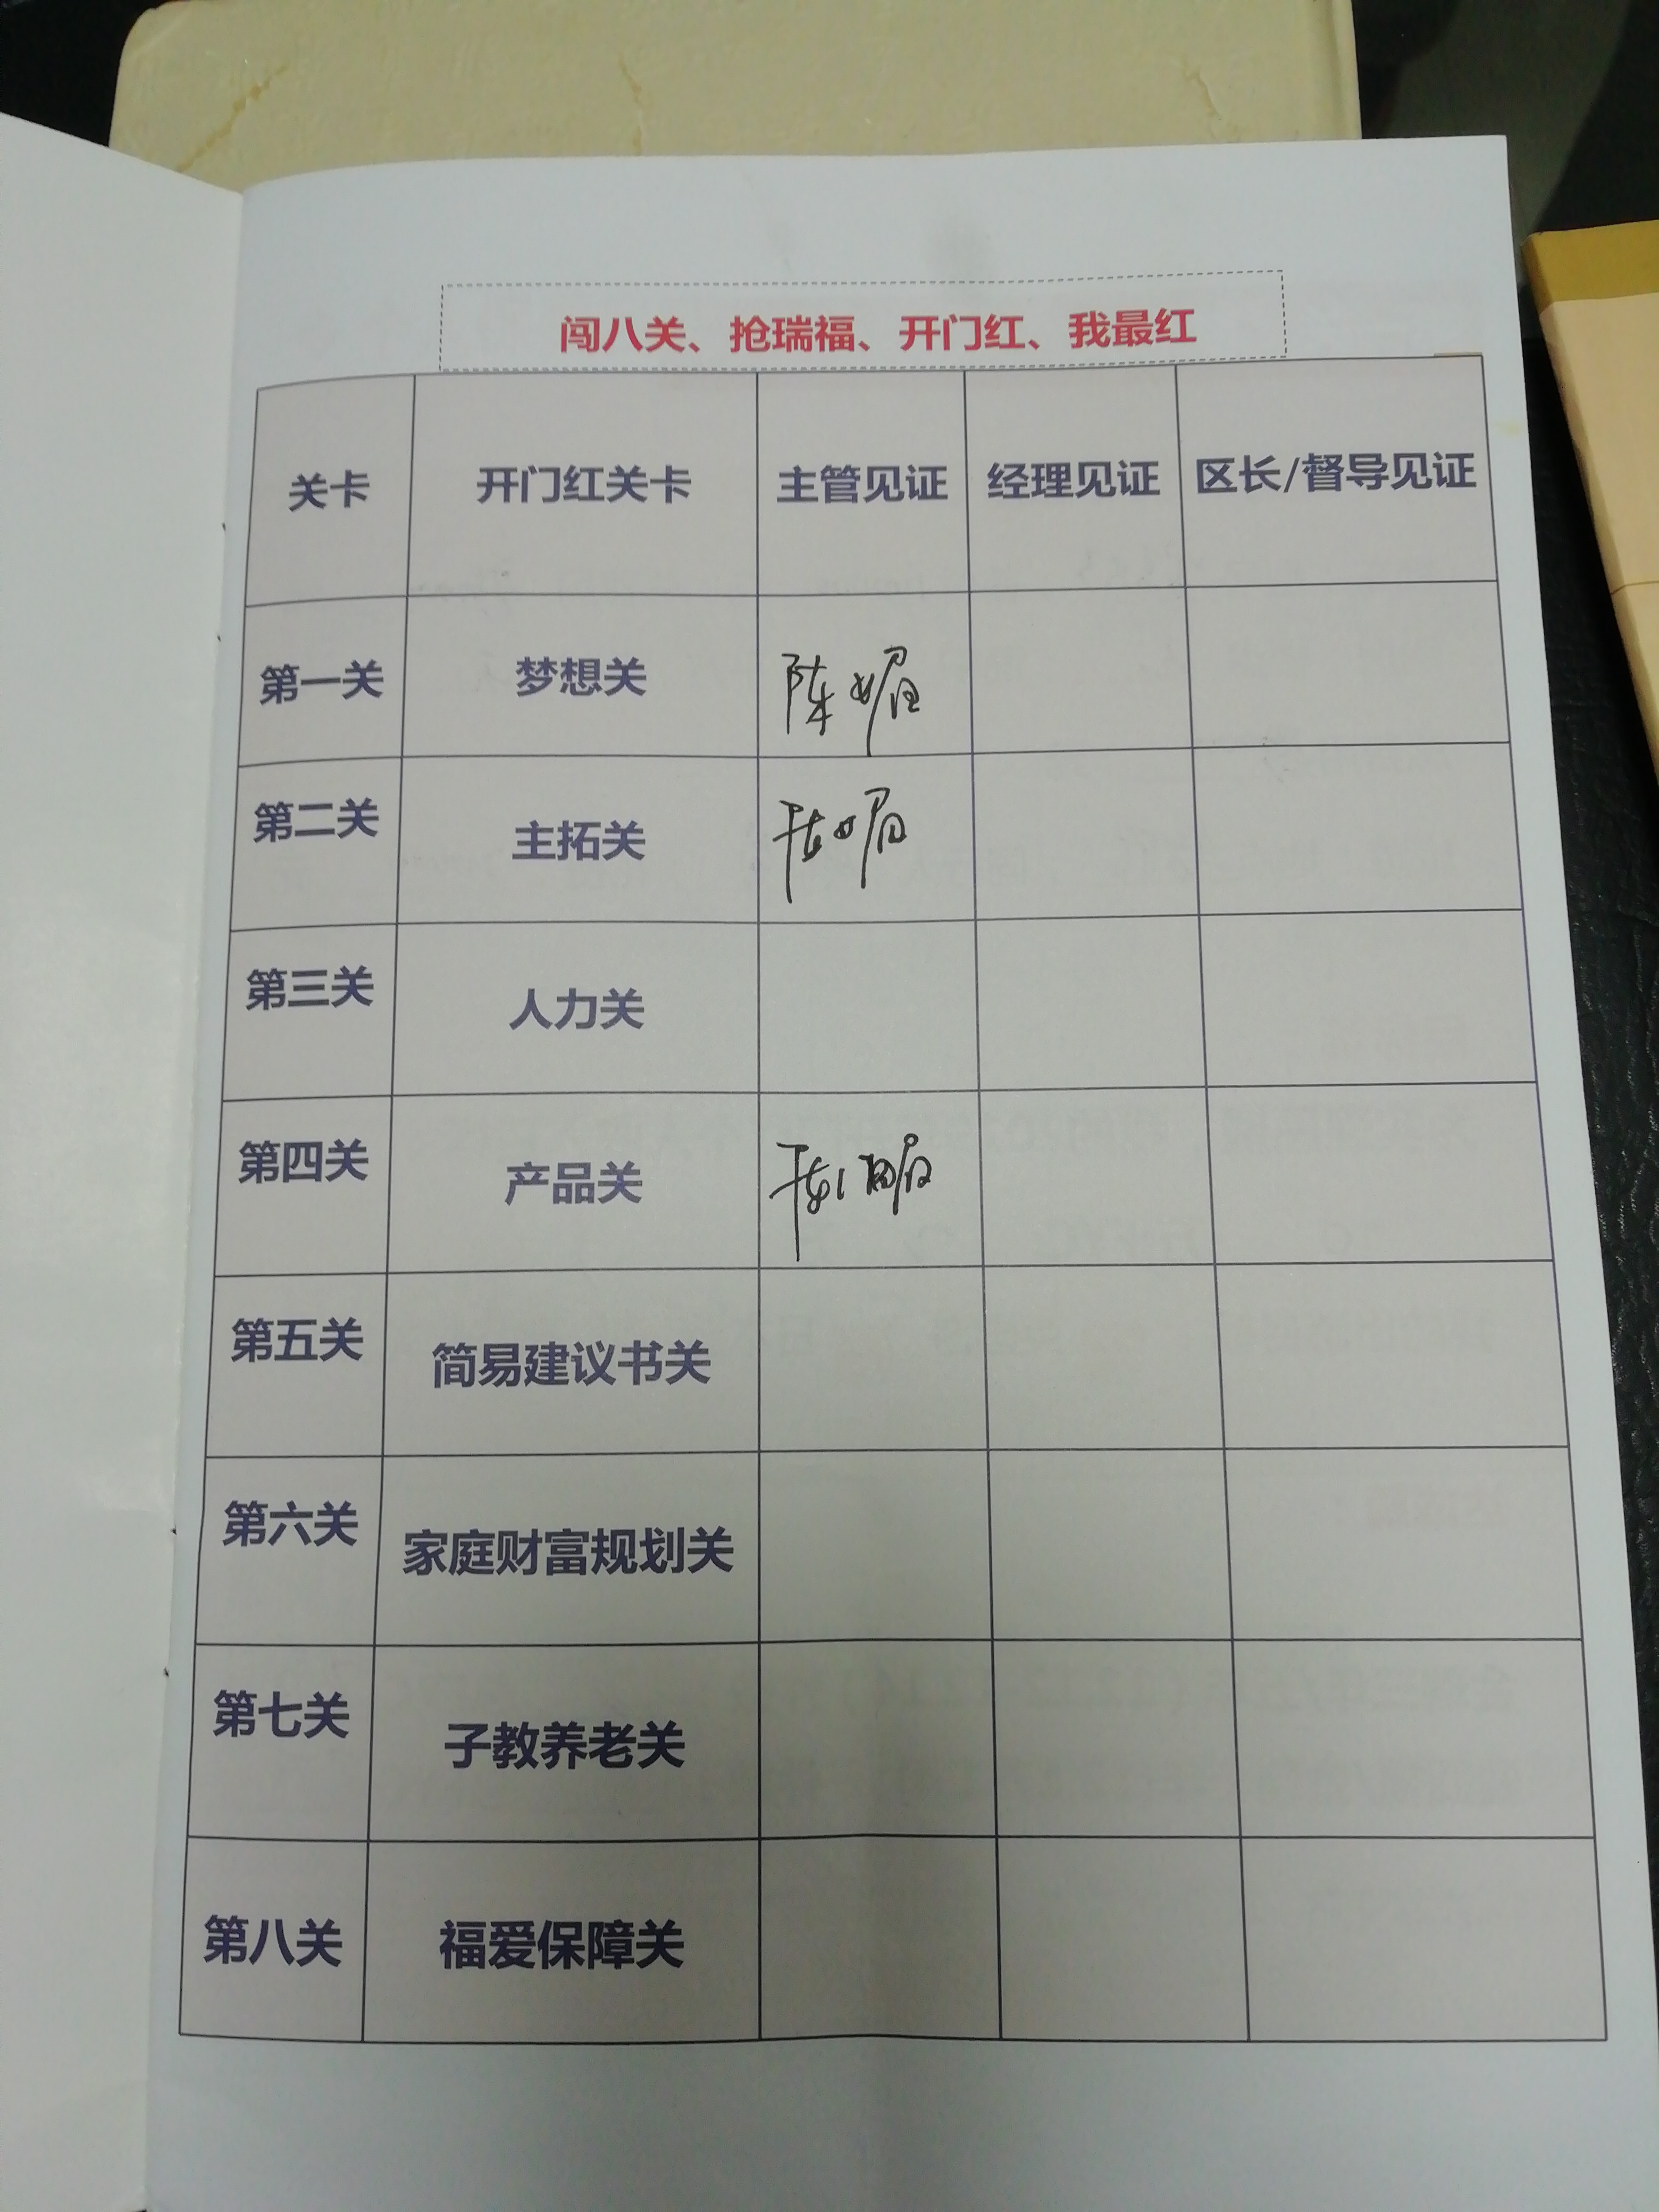 闯八关、抢瑞福、开门红、我最红
关卡 开门红关卡 主管见证 经理见证 区长/督导见证
第一关 梦想关 陈媚
第二关 主拓关
第三关 人力关
第四关 产品关
第五关 简易建议书关
第六关 家庭财富规划关
第七关 子教养老关
第八关 福爱保障关